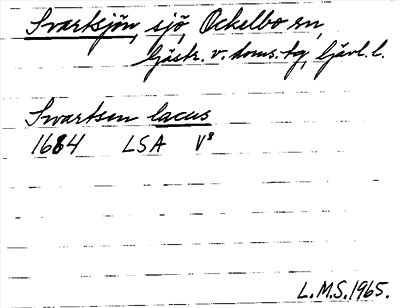 Svartsjön, sjö, Ockelbo sn,
Gästr. v. doms. tg, Gävl. l.
Svartsen lacus
1684 LSA V8
L.M.S. 1965.